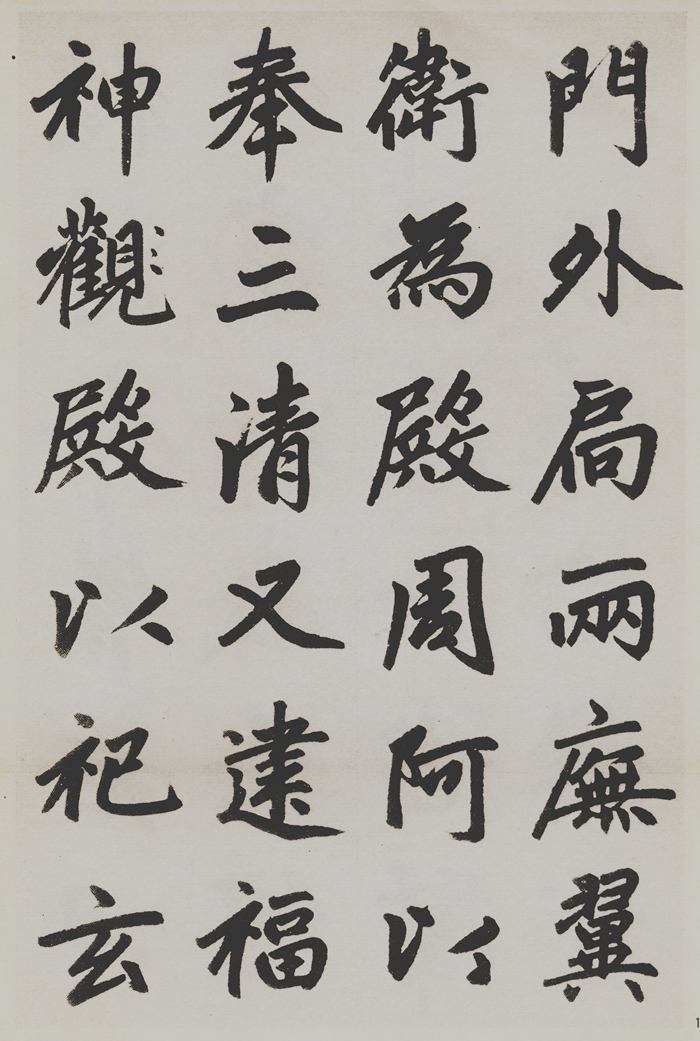 門外局兩廡翼
衛為殿周阿以
奉三清又建福
神觀殿以祀玄
1